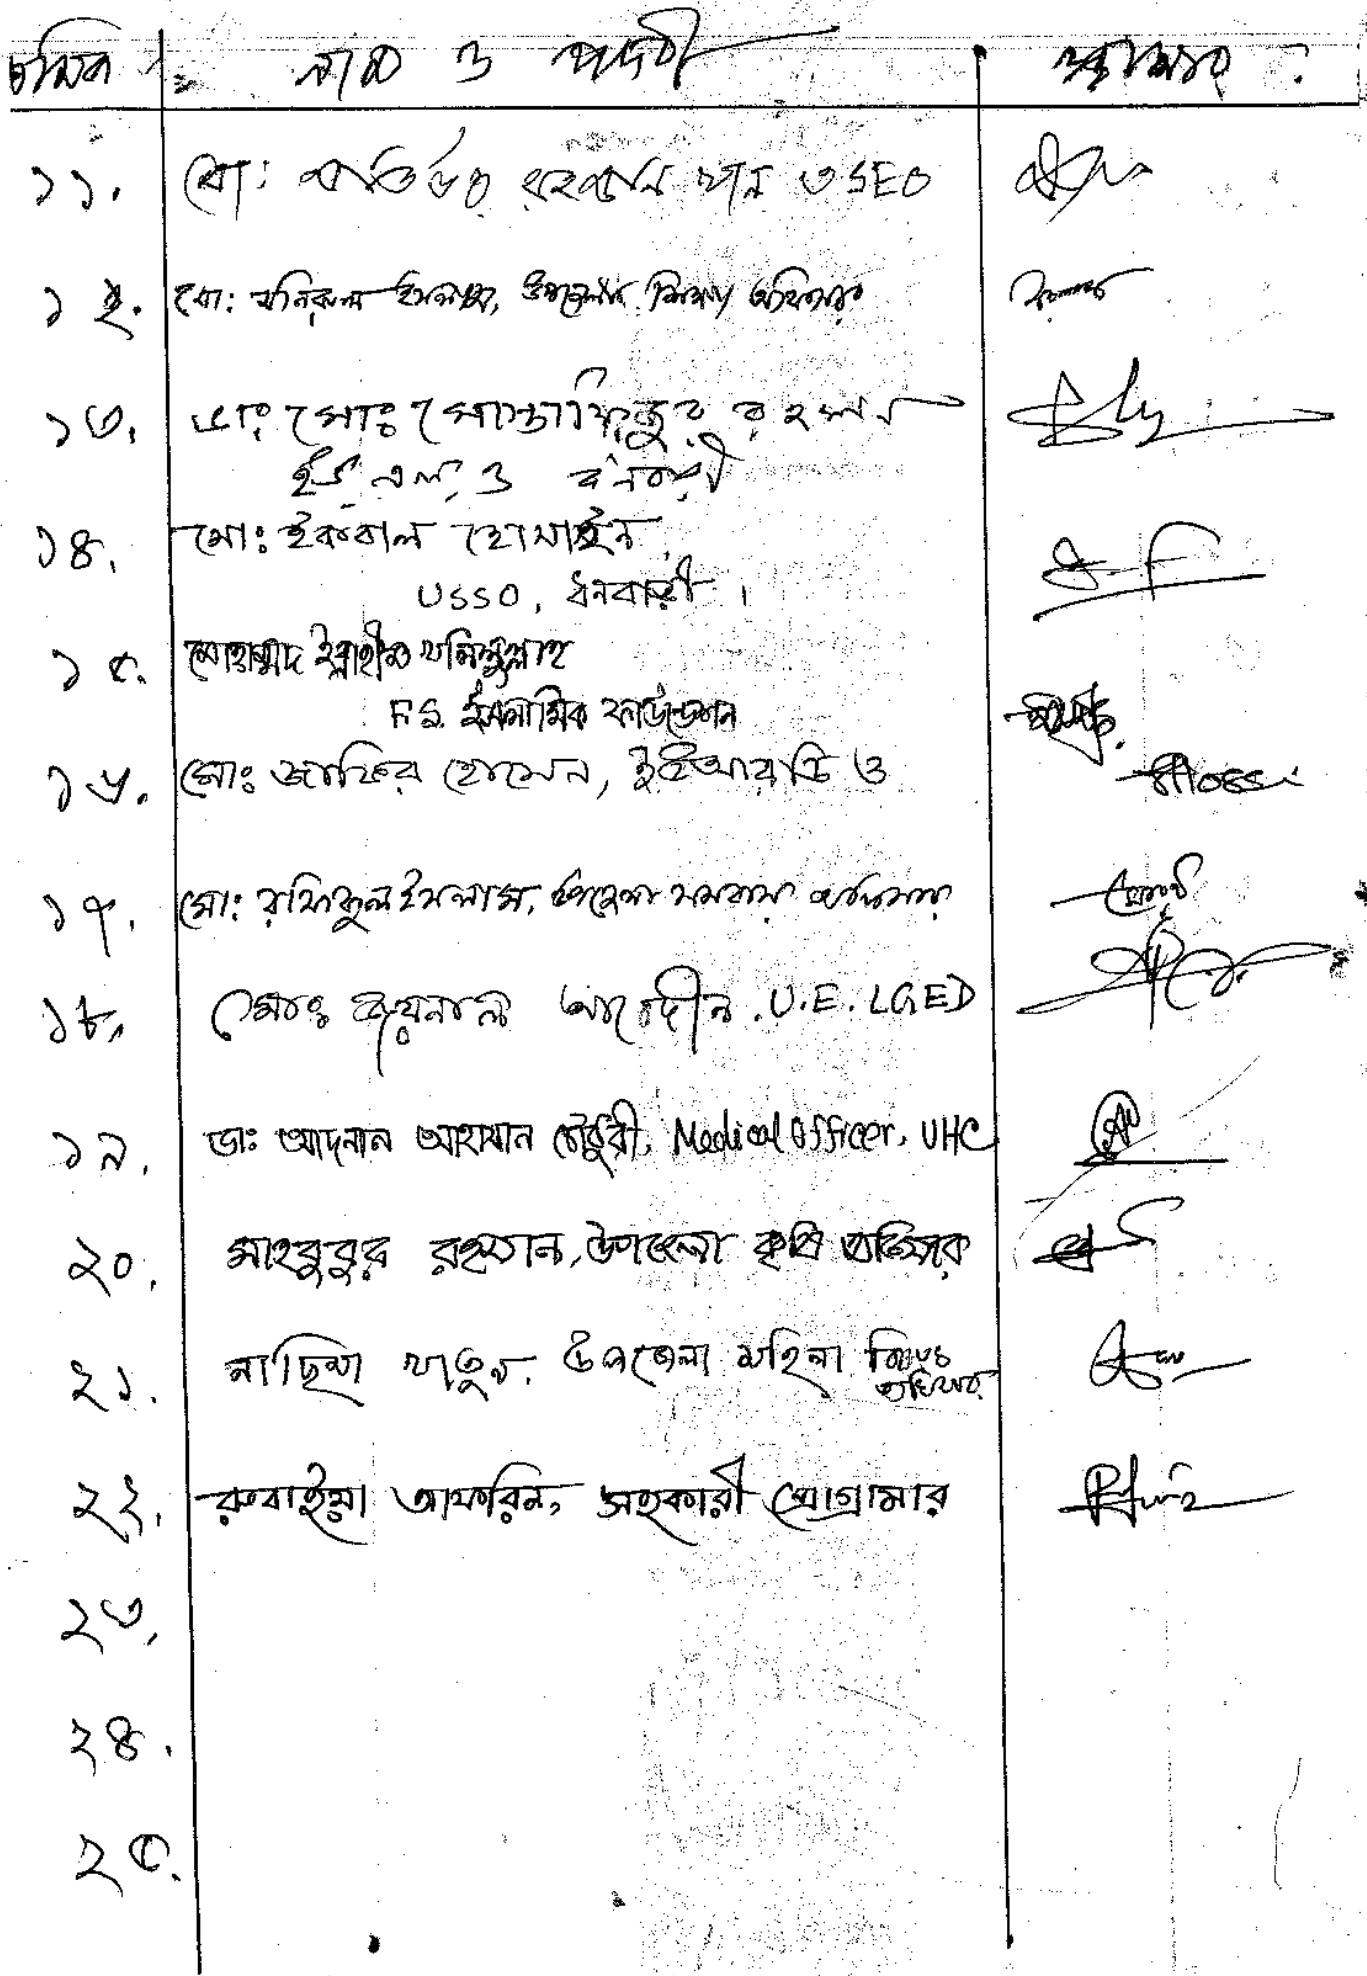 ক্রমিক নাম ও পদবী স্বাক্ষর
১১. মো: রহমান খান USEO
১২. মো: মনিরুল ইসলাম, উপজেলা শিক্ষা অফিসার
১৩. ডাঃ মোঃ মোস্তাফিজুর রহমান
ইউ, এল, ও ধনবাড়ী
১৪. মোঃ ইকবাল হোসাইন,
USSO, ধনবাড়ী।
১৫. মোহাম্মদ ইব্রাহীম খলিলুল্লাহ
F.S. ইসলামিক ফাউন্ডেশন
১৬. মোঃ জাকির হোসেন, ইউআরডিও
১৭. মো: রফিকুল ইসলাম, উপজেলা সমবায় অফিসার
১৮. মোঃ জয়নাল আবেদীন. U.E. LGED
১৯. ডাঃ আদনান আহসান চৌধুরী, Medical Officer, UHC
২০. মাহবুবুর রহমান, উপজেলা কৃষি অফিসার
২১. নাছিমা খাতুন, উপজেলা মহিলা বিষয়ক
অফিসার
২২. রুবাইয়া আফরিন, সহকারী প্রোগ্রামার
২৩.
২৪.
২৫.